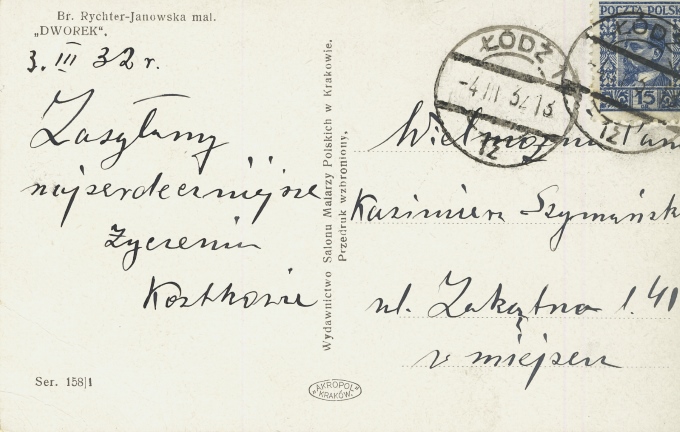 Br. Rychter-Janowska mal.
„DWOREK".
3. III 32 r.
Zasyłamy
najserdeczniejsze
życzenia
Kostkowie
Ser. 158|1
Wydawnictwo Salonu Malarzy Polskich w Krakowie.
Przedruk wzbroniony.
„AKROPOL"
KRAKÓW.
POCZTA POLSK
15
ŁÓDŹ 1
-4.III 32 13
1z
ŁÓDŹ
1z
Wielmożny Pan
Kazimierz Szymańsk
ul. Zakątna l. 41
w miejscu